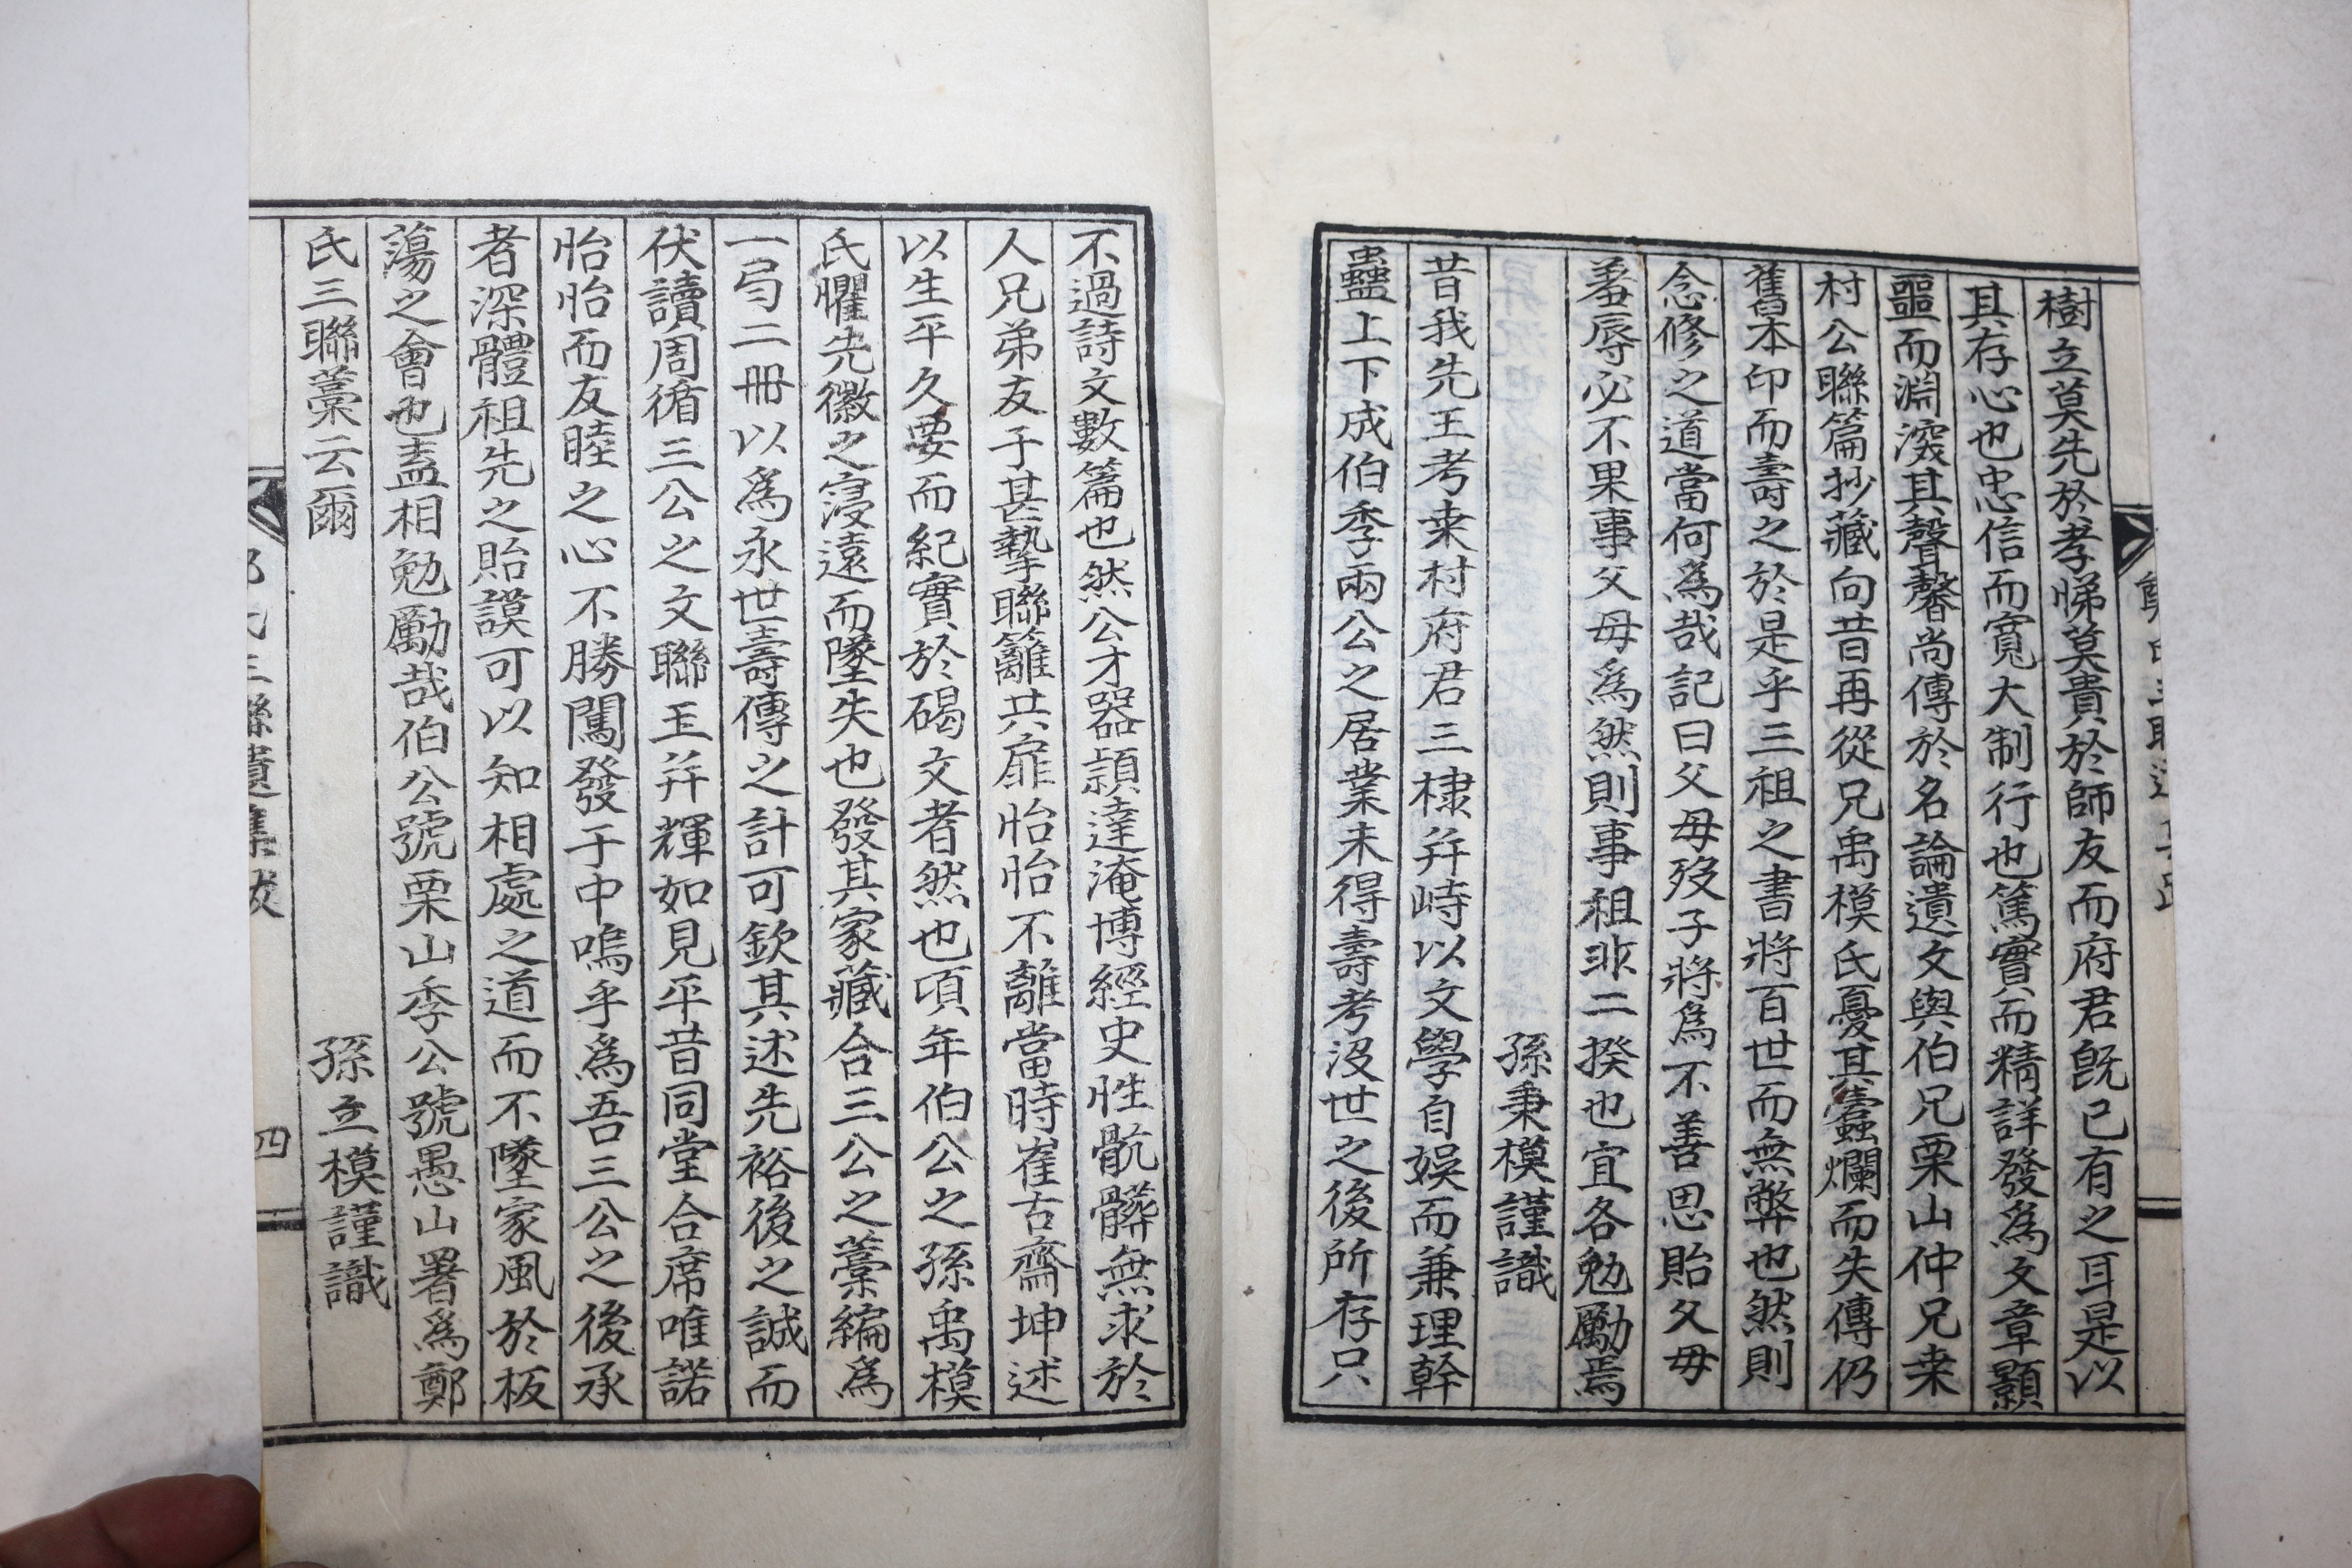 樹立莫先於孝悌莫貴於師友而府君旣已有之耳是以
其存心也忠信而寬大制行也篤實而精詳發爲文章顯
噩而淵深其聲馨尚傳於名論遺文與伯兄栗山仲兄耒
村公聯篇抄藏向昔再從兄禹模氏憂其蠹爛而失傳仍
舊本印而壽之於是乎三祖之書將百世而無弊也然則
念修之道當何爲哉記曰父母歿子將爲不善思貽父母
羞辱必不果事父母爲然則事祖非二揆也宜各勉勵焉
孫秉模謹識
昔我先王考耒村府君三棣幷峙以文學自娛而兼理幹
蠱上下成伯季兩公之居業未得壽考沒世之後所存只
不過詩文數篇也然公才器穎達淹博經史性骯髒無求於
人兄弟友于甚摯聯籬共扉怡怡不離當時崔古齋坤述
以生平久要而紀實於碣文者然也頃年伯公之孫禹模
氏懼先徽之寖遠而墜失也發其家藏合三公之藁編爲
一弓二冊以爲永世壽傳之計可欽其述先裕後之誠而
伏讀周循三公之文聯玉幷輝如見平昔同堂合席唯諾
怡怡而友睦之心不勝闖發于中嗚乎爲吾三公之後承
者深體祖先之貽謨可以知相處之道而不墜家風於板
蕩之會也盍相勉勵哉伯公號栗山季公號愚山署爲鄭
氏三聯藁云爾
孫立模謹識
四